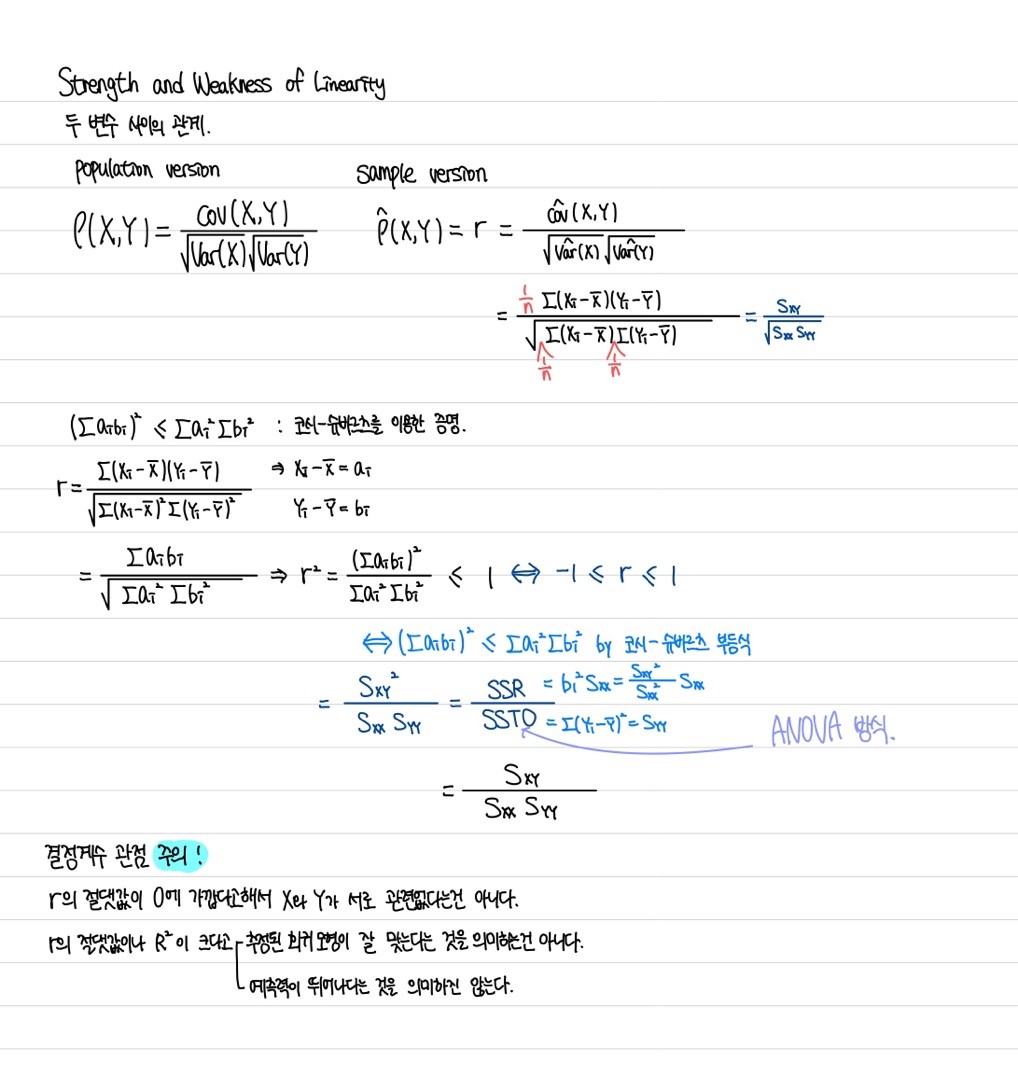 Strength and Weakness of Linearity
두 변수 사이의 관계.
population version
sample version
ρ(X,Y) = Cov(X,Y) / √Var(X) √Var(Y)
ρ̂(X,Y) = r = Côv(X,Y) / √Vâr(X) √Vâr(Y)
= 1/n Σ(Xi-X̄)(Yi-Ȳ) / √Σ(Xi-X̄)Σ(Yi-Ȳ) = SXY / √SXX SYY
1/n 1/n
(Σaibi)² ≤ Σai²Σbi² : 코시-슈바르츠를 이용한 증명.
r = Σ(Xi-X̄)(Yi-Ȳ) / √Σ(Xi-X̄)²Σ(Yi-Ȳ)² ⇒ Xi-X̄ = ai
Yi-Ȳ = bi
= Σaibi / √Σai² Σbi² ⇒ r² = (Σaibi)² / Σai²Σbi² ≤ 1 ⇔ -1 ≤ r ≤ 1
⇔ (Σaibi)² ≤ Σai²Σbi² by 코시-슈바르츠 부등식
= SXY² / SXX SYY = SSR / SSTO
= b1² SXX = SXY² / SXX² SXX
= Σ(Yi-Ȳ)² = SYY
ANOVA 방식.
= SXY / SXX SYY
결정계수 관점 주의!
r의 절댓값이 0에 가깝다고해서 X와 Y가 서로 관련없다는건 아니다.
r의 절댓값이나 R²이 크다고 추정된 회귀모형이 잘 맞는다는 것을 의미하는건 아니다.
예측력이 뛰어나다는 것을 의미하진 않는다.